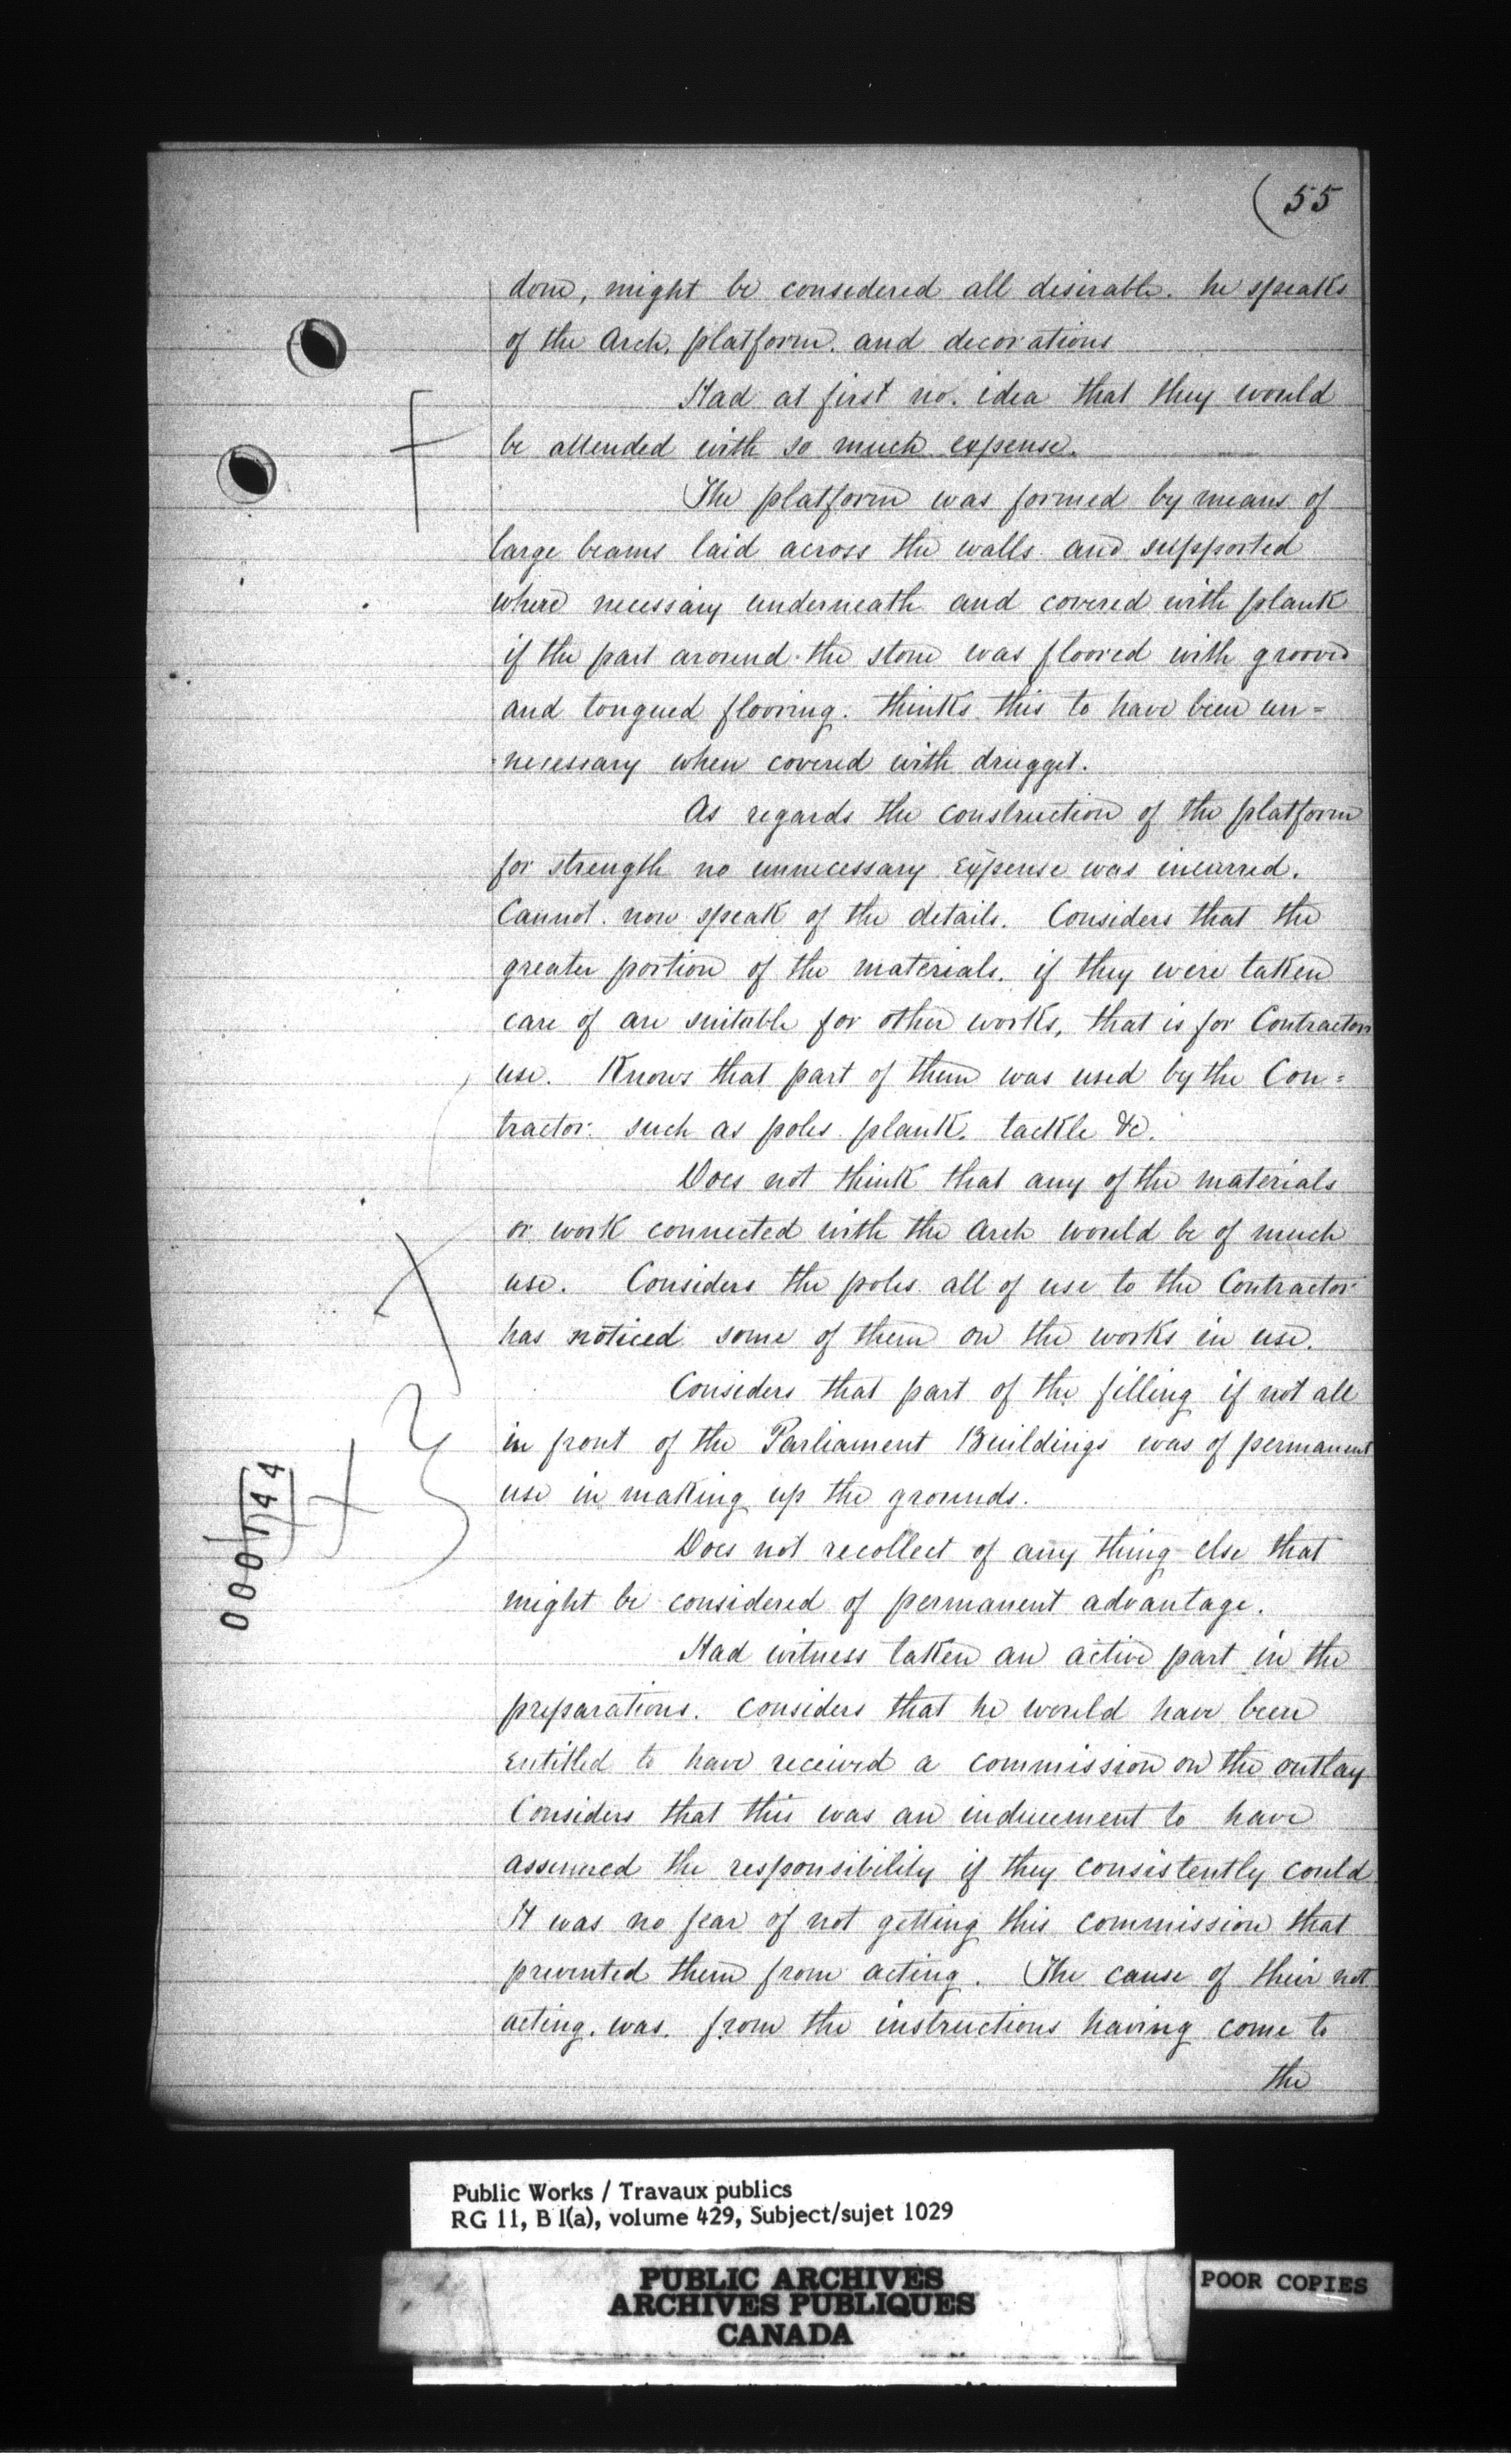 (55
done, might be considered all desirable. he speaks
of the Arch, platform. and decorations
Had at first no. idea that they would
be attended with so much expense.
The platform was formed by means of
large beams laid across the walls and supported
where necessary underneath and covered with plank
if the part around the stone was floored with grooved
and tongued flooring. thinks this to have been un=
necessary when covered with drugget.
As regards the construction of the platform
for strength no unnecessary expense was incurred.
Cannot now speak of the details. Considers that the
greater portion of the materials. if they were taken
care of are suitable for other works, that is for Contractors
use. Knows that part of them was used by the Con=
tractor. such as poles plank. tackle &c.
Does not think that any of the materials
or work connected with the Arch would be of much
use. Considers the poles all of use to the Contractor
has noticed some of them on the works in use.
Considers that part of the filling if not all
in front of the Parliament Buildings was of permanent
use in making up the grounds.
Does not recollect of any thing else that
might be considered of permanent advantage.
Had witness taken an active part in the
preparations. considers that he would have been
entitled to have received a commission on the outlay
Considers that this was an inducement to have
assumed the responsibility if they consistently could
It was no fear of not getting this commission that
prevented them from acting. The cause of their not
acting. was. from the instructions having come to
the
000144
Public Works / Travaux publics
RG 11, B 1(a), volume 429, Subject/sujet 1029
PUBLIC ARCHIVES
ARCHIVES PUBLIQUES
CANADA
POOR COPIES